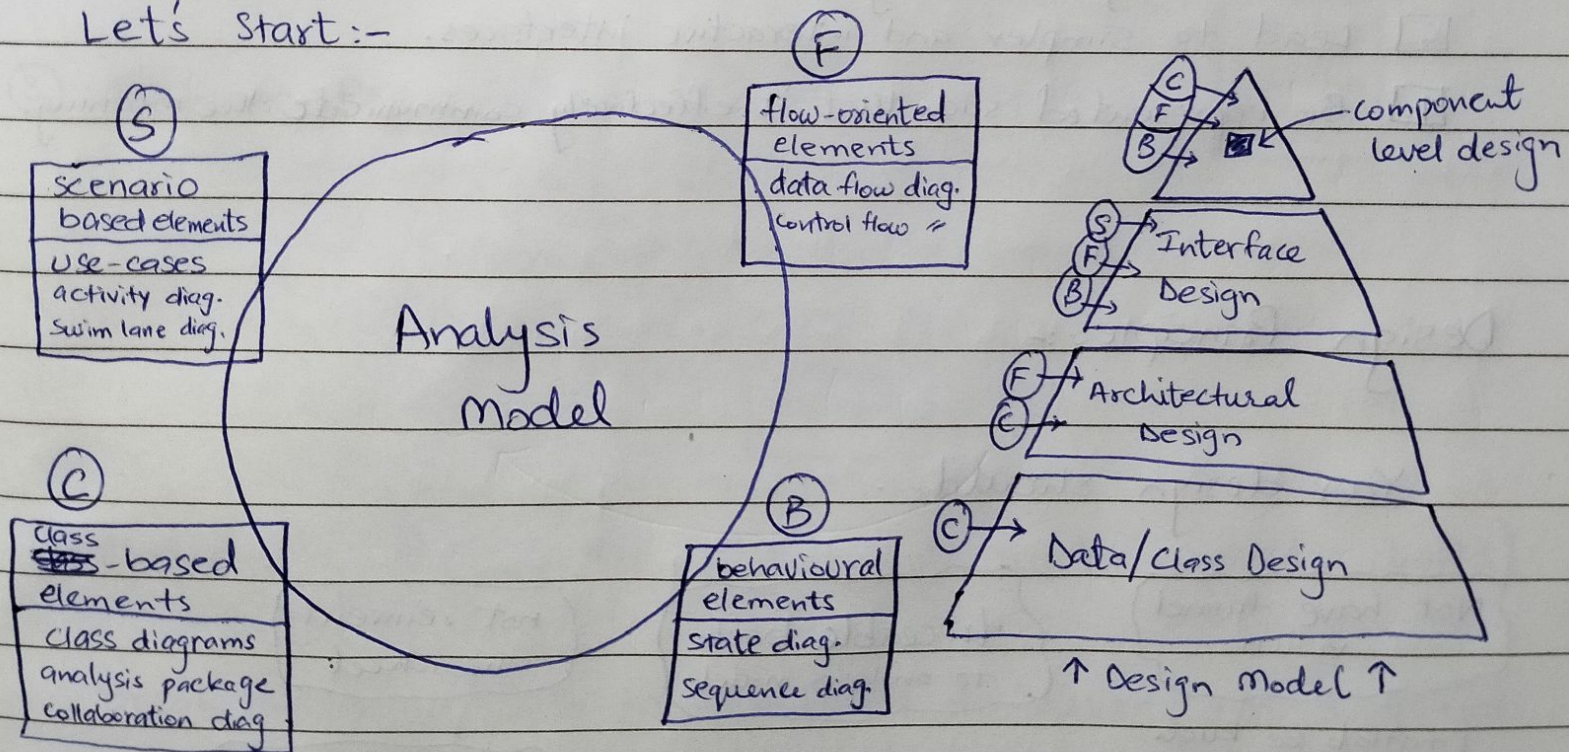 Let's Start:-
S
scenario
based elements
use-cases
activity diag.
swim lane diag.
F
flow-oriented
elements
data flow diag.
control flow "
Analysis
Model
C
class
-based
elements
class diagrams
analysis package
collaboration diag
B
behavioural
elements
state diag.
sequence diag.
C
F
B
component
level design
S
F
B
Interface
Design
F
C
Architectural
Design
C
Data/Class Design
↑ Design Model ↑